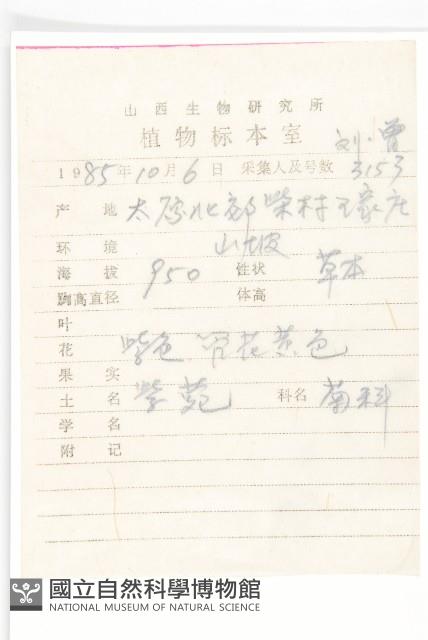 山西生物研究所
植物标本室
刘、曾
1985年10月6日 采集人及号数 3153
产地 太原北郊柴村王家庄
环境 山坡
海拔 950 性状 草本
胸高直径 体高
叶
花 紫色 管花黄色
果实
土名 紫菀 科名 菊科
学名
附记
國立自然科學博物館
NATIONAL MUSEUM OF NATURAL SCIENCE